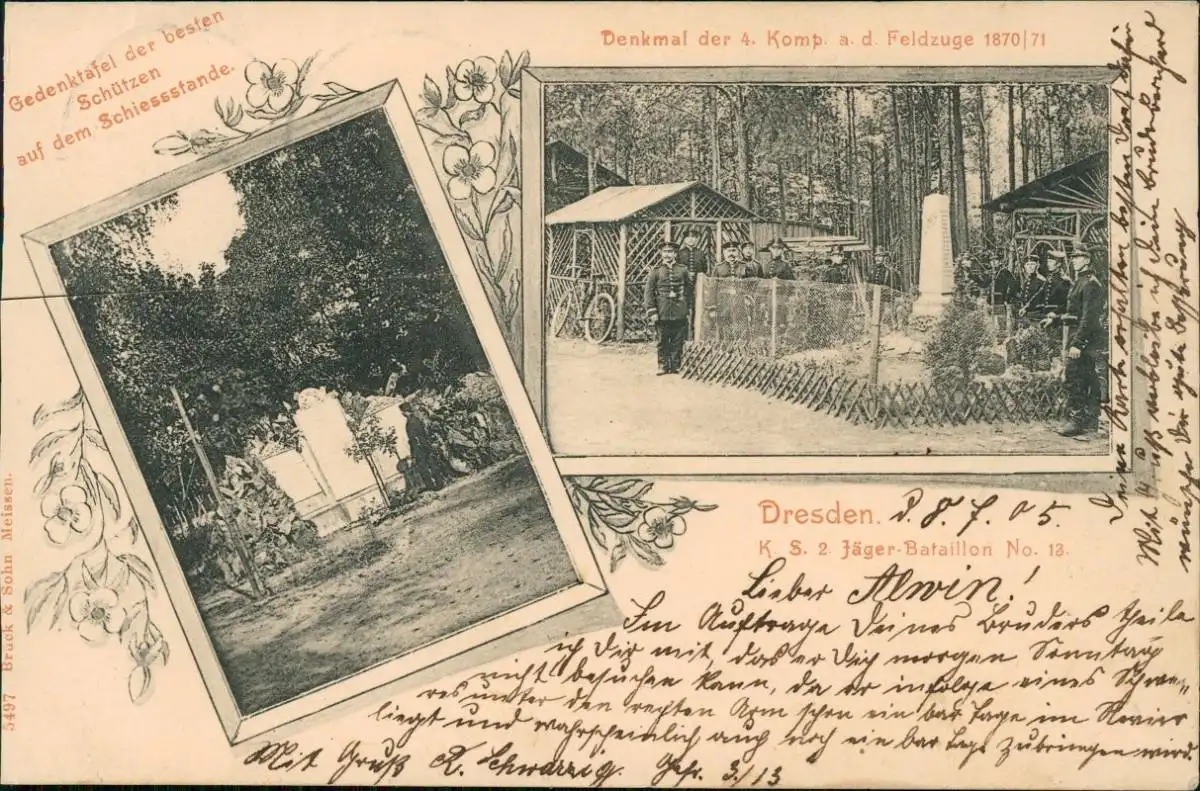 Gedenktafel der besten
Schützen
auf dem Schiessstande.
Denkmal der 4. Komp. a. d. Feldzuge 1870/71
Dresden. d. 8. 7. 05.
K. S. 2. Jäger-Bataillon No. 13.
Lieber Alwin!
Im Auftrage Deines Bruders theile
ich Dir mit, das er Dich morgen Sonntag
nicht besuchen kann, da er infolge eines Schwe-
res unter den rechten Arm schon ein bar Tage im Revier
liegt und wahrscheinlich auch noch ein bar Tage zubringen wird.
Mit Gruß K. Schwarzig. Gefr. 3./13
Karte erhalten besten Dank
Mit Gruß verbleibe ich Dein Bruder
wünsche Dir gute Besserung
5497 Brück & Sohn Meissen.